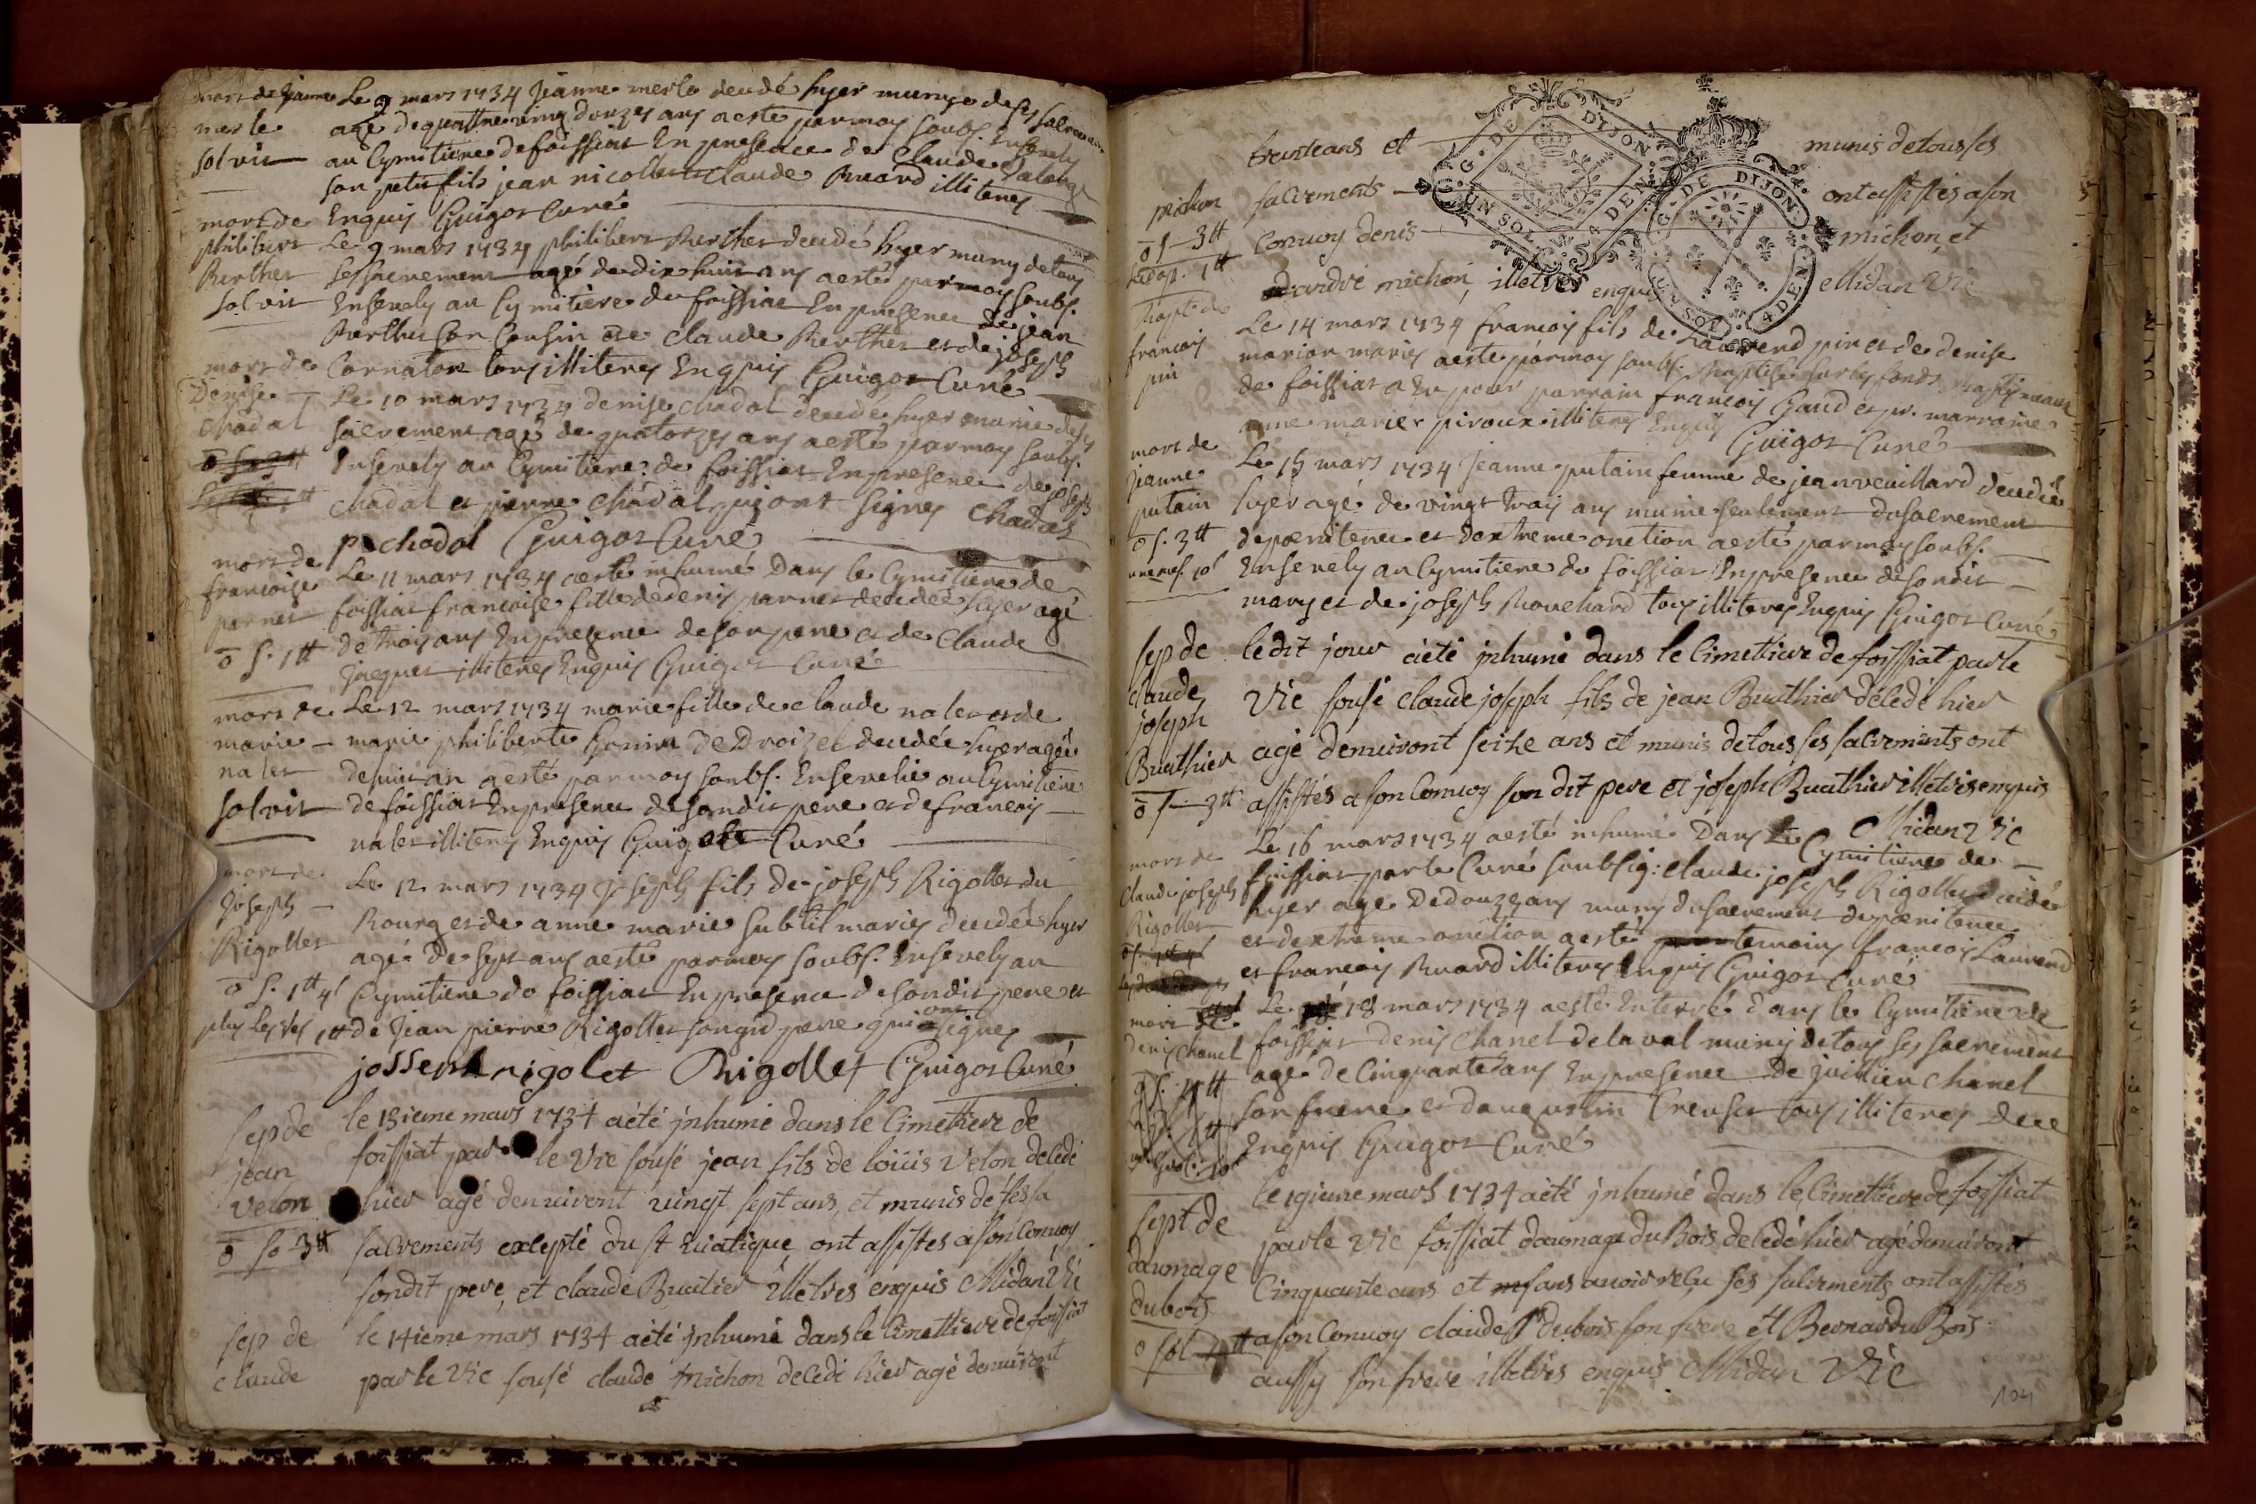 mors de Jeanne
merle
solvit
Le 9 mars 1734 Jeanne merle decedé hyer munye de ses sacremens
agé de quattre ving douzes ans a esté par moy soubs. Ensevely
au Cymitiere de foissiat En presence de Claude
son petit fils jean nicollet Claude Buard illiteres
Enquis Guigot Curé
mors de
philibert
Berthet
solvit
Le 9 mars 1734 philibert Berthet decedé hyer muny de tous
ses sacrement agé de dix huit ans a esté par moy soubs.
Ensevely au Cymitiere de foissiat En presence de jean
Berthet son Cousin de Claude Berthet et de joseph
Cornaton tous illiteres Enquis Guigot Curé
mors de
Denise
chadal
Le 10 mars 1734 denise chadal decedé hyer munie de ses
sacrement agé de quatorzes ans a esté par moy soubs.
Ensevely au Cymitiere de foissiat En presence de joseph
chadal et pierre chadal qui ont signes chadal
p chadal Guigot Curé
mors de
francoise
pernet
o s. 1tt
Le 11 mars 1734 a esté inhumé Dans le Cymitiere de
foissiat francoise fille de denis pernet decedeé hyer agé
de trois ans En presence de son pere et de Claude
jacquet illiteres Enquis Guigot Curé
mors de
marie
nalet
solvit
Le 12 mars 1734 marie fille de claude nalet et de
marie philiberte Gonin de Droizel decedée hyer agée
de huit an a esté par moy soubs. Ensevelie au Cymitiere
de foissiat En presence de sondit pere et de francois
nalet illiteres Enquis Guigot Curé
mors de
Joseph
Rigollet
o s. 1tt 4s
Le 12 mars 1734 Joseph fils de joseph Rigollet du
Bourg et de anne marie subtil maries decedé hyer
agé de sept ans a esté par moy soubs. Ensevely au
Cymitiere de foissiat En presence de sondit pere et
de Jean pierre Rigollet son grd pere qui ont signes
josseph rigolet Rigollet Guigot Curé
sep de
jean
veton
o so 3tt
le 13ieme mars 1734 a été jnhumé dans le Cimettiere de
foissiat par le Vic sousé jean fils de loüis Veton decedé
hier agé denuiront vingt sept ans, et munis de ses
sacrements excepté du st viatique ont assistes a son Convoy
sondt pere, et claude Buatier illetres enquis Midan Vic
sep de
claude
le 14ieme mars 1734 a été jnhumé dans le Cimettiere de foissiat
par le Vic sousé claude michon decedé hier agé denuiront
michon
o s 3tt
trente ans et munis de tous ses
sacrements ont assistés a son
Convoy denis michon, et
dandré michon, illetres enquis Midan Vic
Bapt. de
francois
pin
G.G. DE DIJON. UN SOL. 4 DEN.
G. DE DIJON. UN SOL. 4 DEN.
Le 14 mars 1734 francois fils de Laurend pin et de denise
marion maries a esté par moy soubs. Baptisé sur les fonds Baptismaux
de foissiat a Eu pour parrain francois Gaud et pr. marraine
anne marie piroux illiteres Enquis Guigot Curé
mors de
jeanne
putain
o s. 3tt
Le 15 mars 1734 Jeanne putain femme de jean veuillard decedée
hyer agé de vingt trois ans munie seulement du sacrement
de poenitence et dextreme onction a esté par moy soubs.
Ensevely au Cymitiere de foissiat En presence de sondit
mary et de joseph Bouchard tous illiteres Enquis Guigot Curé
sep de
claude
joseph
Buathier
o s 3tt
ledit jour a été jnhumé dans le Cimettiere de foissiat par le
Vic sousé claude joseph fils de jean Buathier décédé hier
agé denuiront seize ans et munis de tous ses sacrements ont
assistés a son Convoy son dit pere et joseph Buathier illetres enquis
Midan Vic
mors de
Claude joseph
Rigollet
Le 16 mars 1734 a esté inhumé Dans le Cymitiere de
foissiat par le Curé soubsig: claude joseph Rigollet decedé
hyer agé De douzes ans muny du sacrement de poenitence
et dextreme onction a esté temoins francois Laurend
et francois Buard illiteres Enquis Guigot Curé
mors de
denis Chanel
Le 18 mars 1734 a esté Enterré dans le Cymitiere de
foissiat denis Chanel de la val munis de tous ses sacrement
agé de Cinquante ans En presence de jullien Chanel
son frere et daugustin Creuset tous illiteres de ce
Enquis Guigot Curé
sept de
daumage
dubois
le 19ieme mars 1734 a été jnhumé dans le Cimettiere de foissiat
par le Vic foissiat daumage du Bois decedé hier agé denuiront
Cinquante ans et sans auoir reçu ses sacrements ont assistés
a son Convoy claude dubois son frere et Bernard du Bois
aussy son frere illetres enquis Midan Vic
104